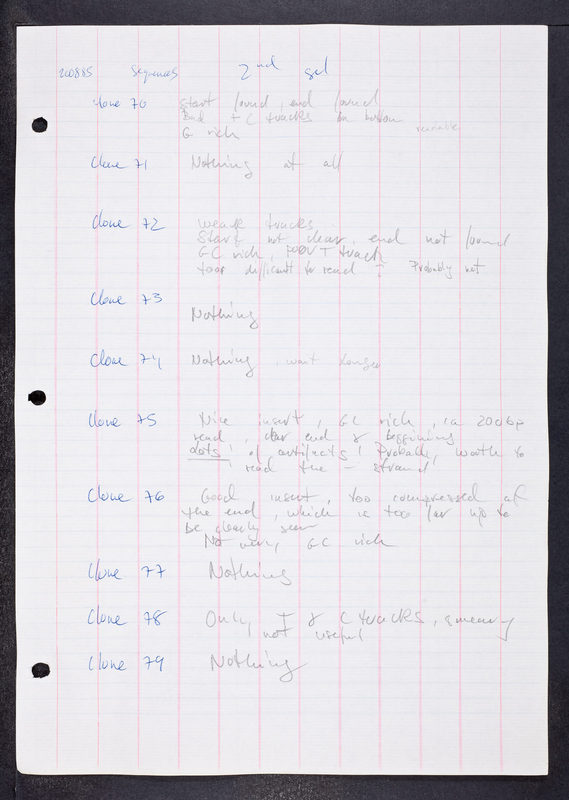 210885 Sequences 2nd gel
Clone 70 Start found, end found
Bad T C tracks on bottom
G rich readable
Clone 71 Nothing at all
Clone 72 weak tracks
Start not clear, end not found
GC rich, poor T track
too difficult to read ? Probably not
Clone 73
Nothing
Clone 74 Nothing, want longer
Clone 75 Nice insert, GC rich, ca 200bp
read, clear end & beginning
Lots! of artifacts! Probably worth to
read the - strand!
Clone 76 Good insert, too compressed at
the end, which is too far up to
be clearly seen
Not very GC rich
Clone 77 Nothing
Clone 78 Only T & C tracks, smeary
not useful
Clone 79 Nothing